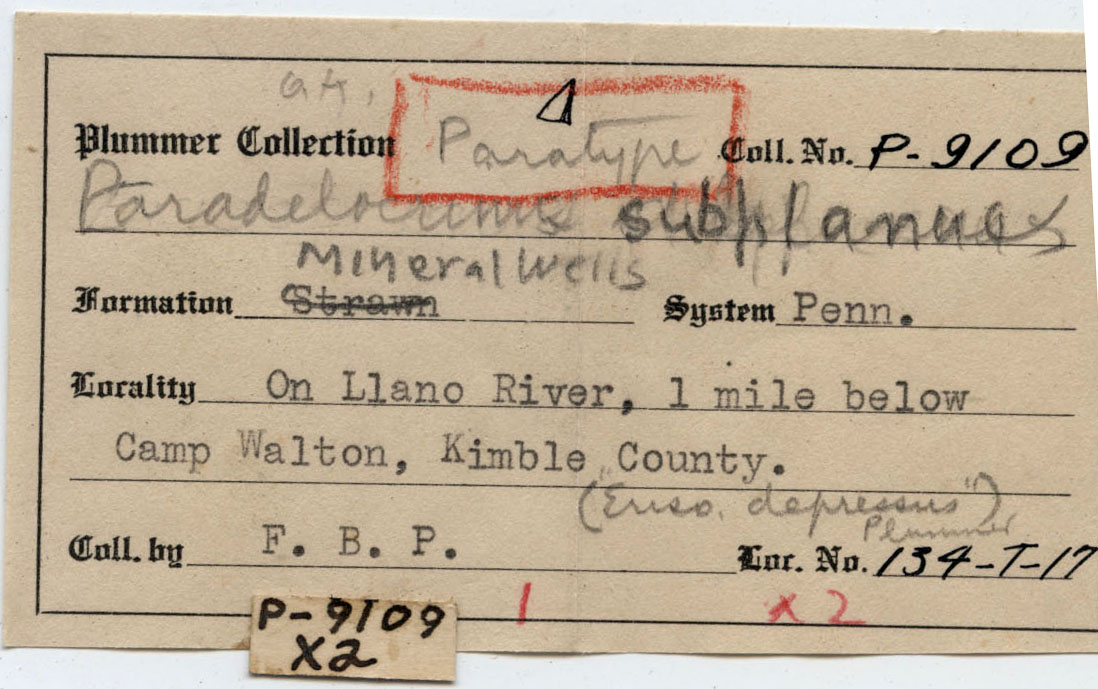 Plummer Collection Paratype Coll. No. P-9109
Paradelocrinus subplanus
Mineral Wells
Formation Strawn System Penn.
Locality On Llano River, 1 mile below
Camp Walton, Kimble County.
("Eriso. depressus")
Plummer
Coll. by F. B. P. Loc. No. 134-T-17
1 X2
P-9109
X2